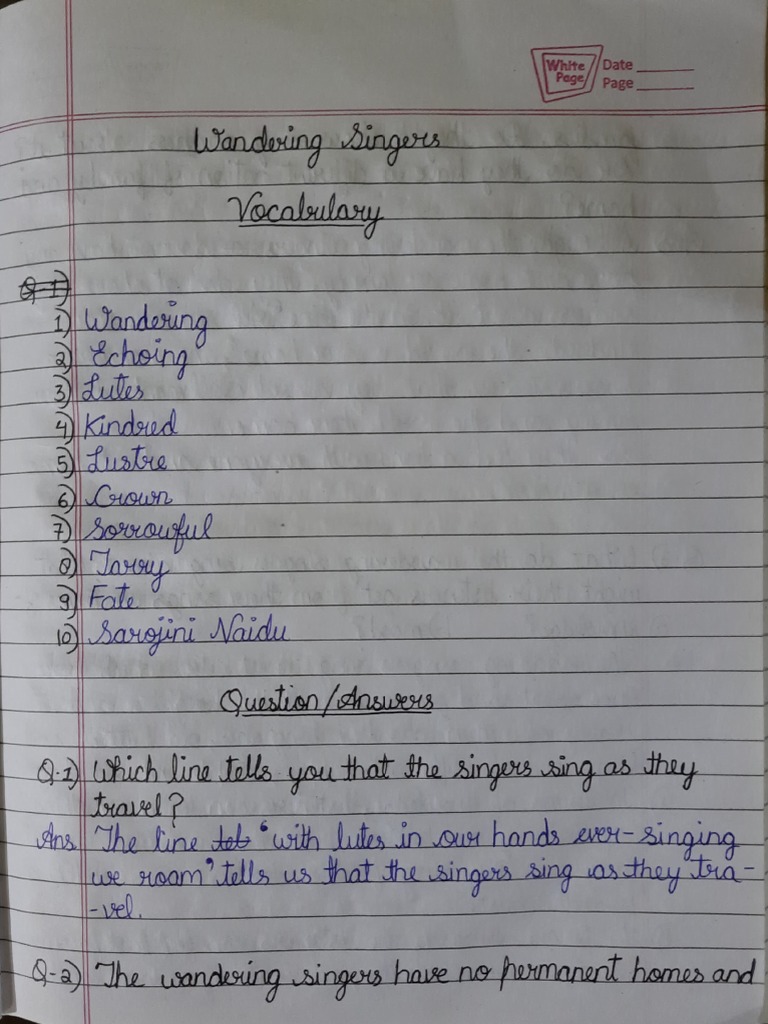 White Page Date
Page
Wandering Singers
Vocabulary
Q-1)
1) Wandering
2) Echoing
3) Lutes
4) Kindred
5) Lustre
6) Crown
7) Sorrowful
8) Tarry
9) Fate
10) Sarojini Naidu
Question/Answers
Q-1) Which line tells you that the singers sing as they
travel?
Ans The line "with lutes in our hands ever-singing
we roam" tells us that the singers sing as they tra-
-vel.
Q-2) The wandering singers have no permanent homes and